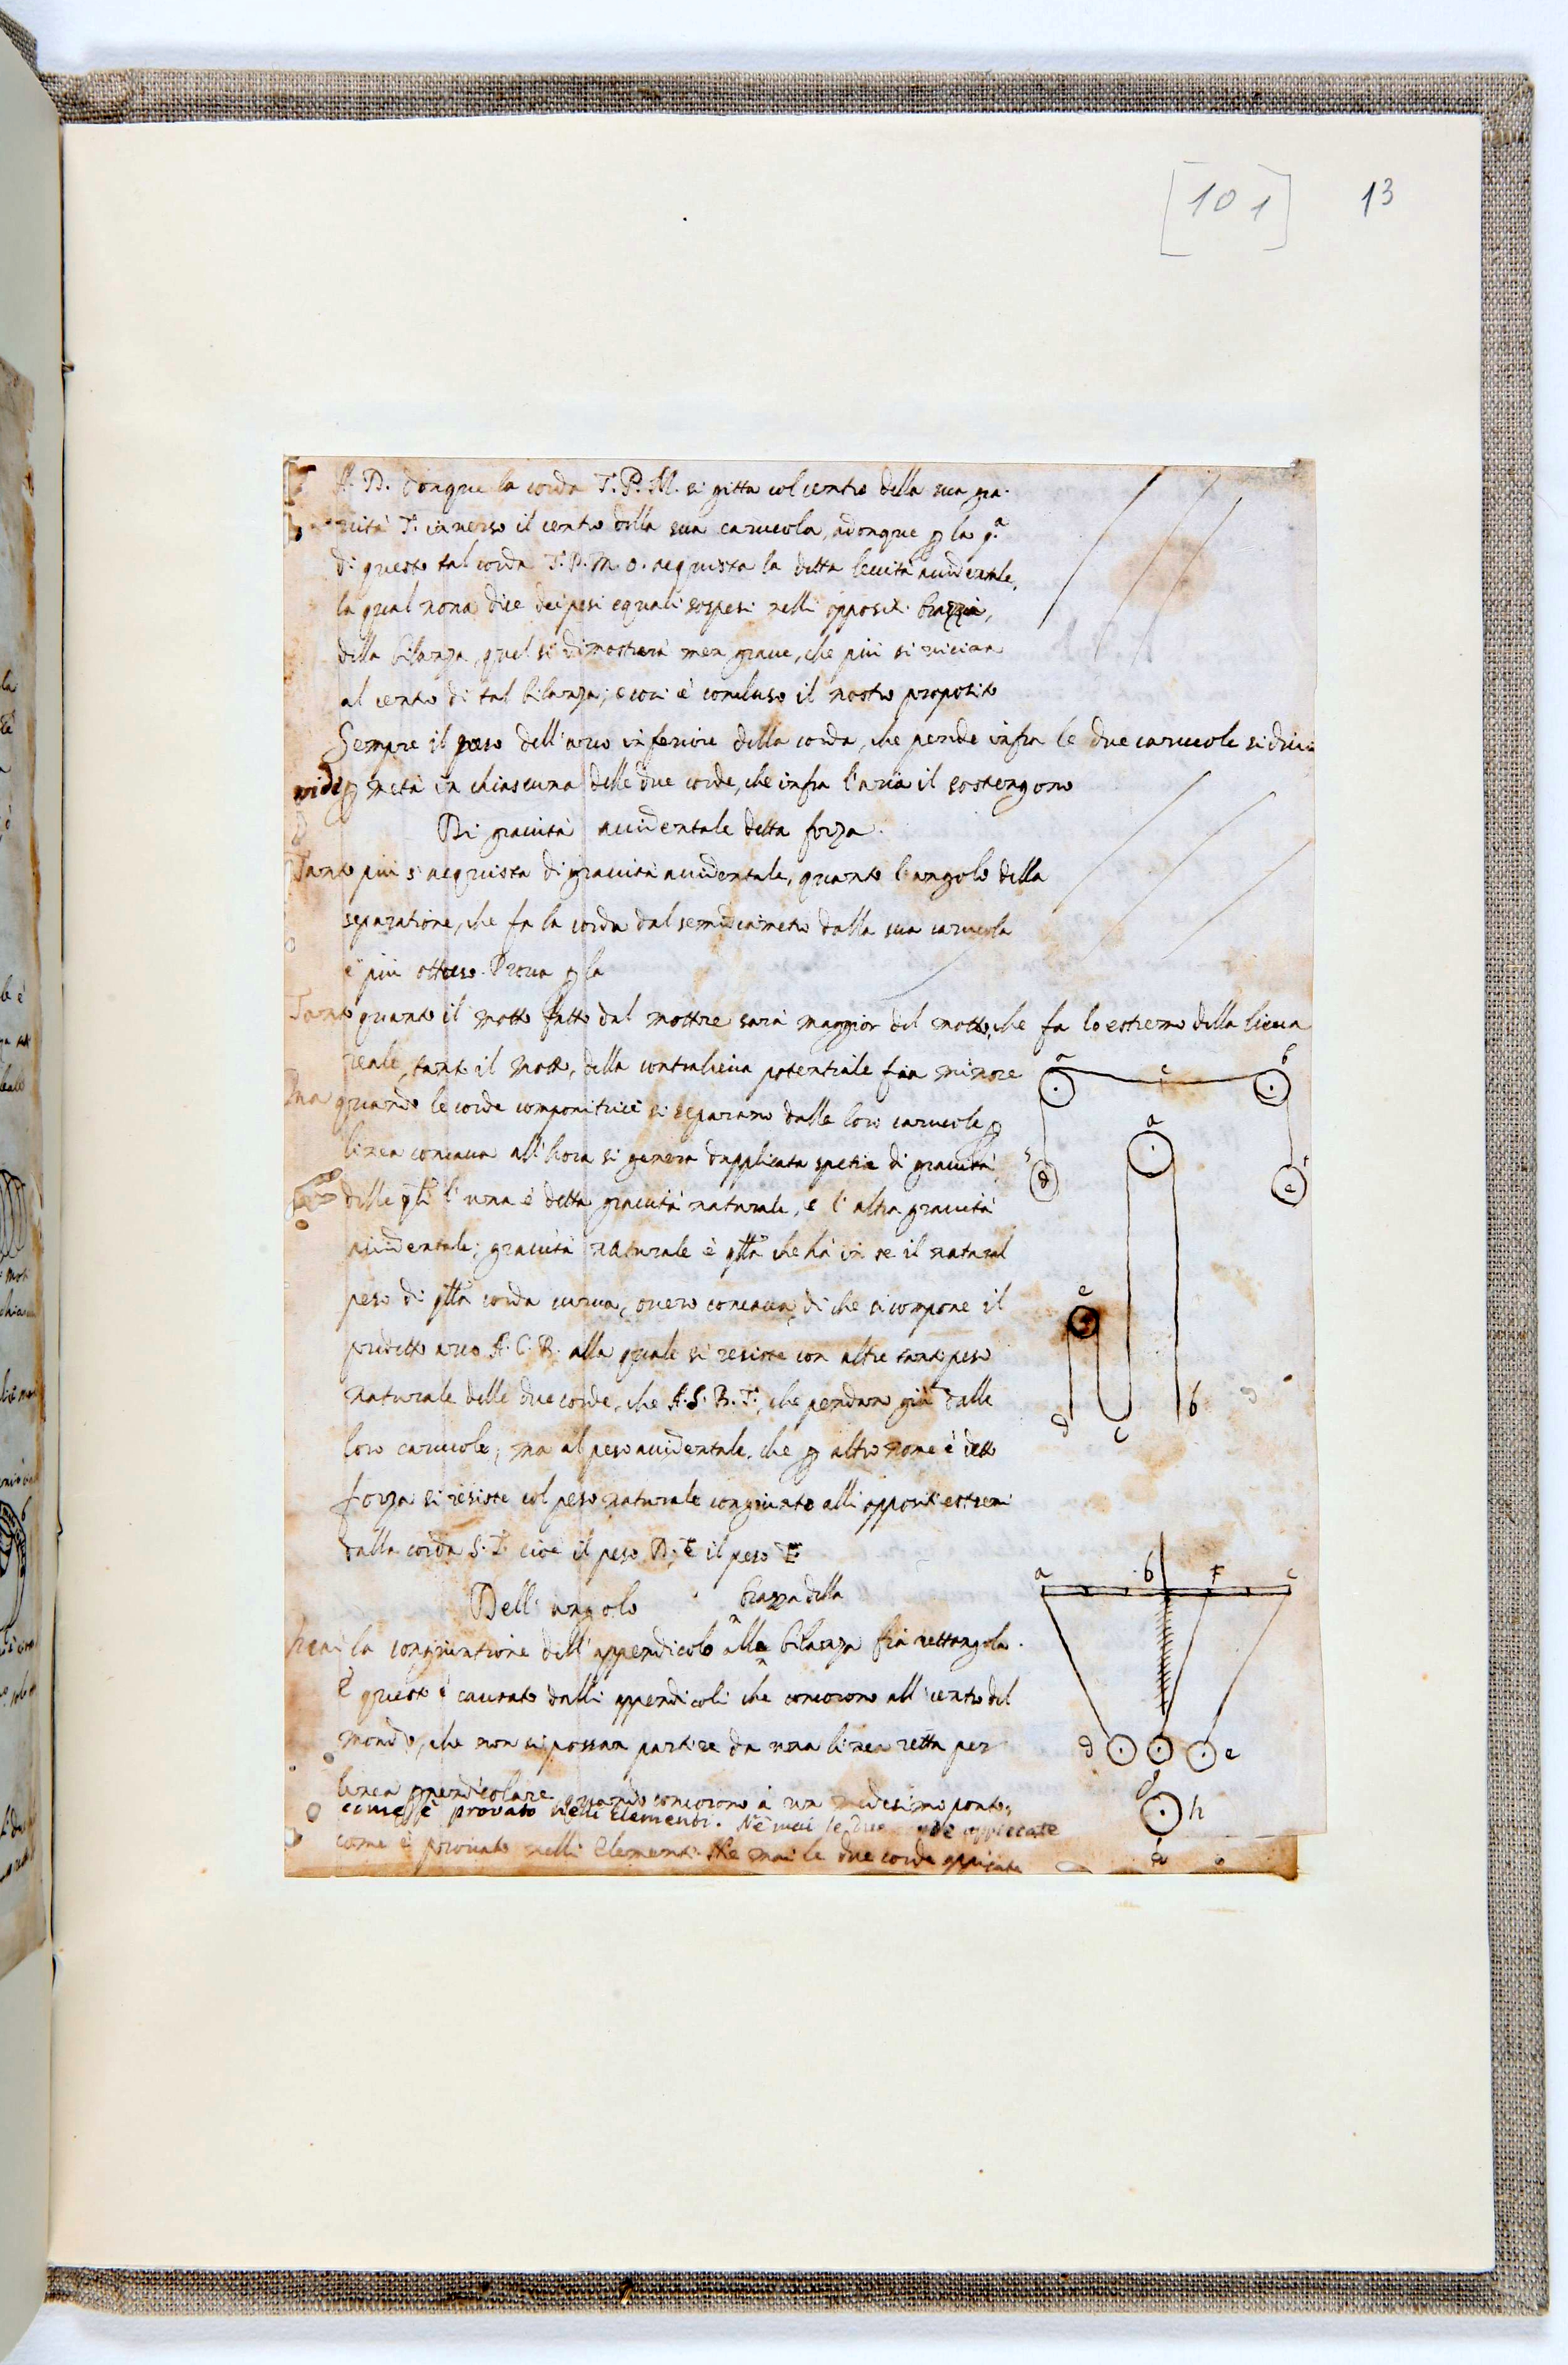 [101] 13
A. B. donque la corda T. P. M. si gitta col centro della sua gra-
uità T. in uerso il centro della sua carucola, adonque p la 9.a
di questo tal corda T. P. M. O. acquista la detta leuità accidentale,
la qual nona dice dei pesi equali sospesi nelli oppositi brazzi,
della bilanza, quel si dimostrerà men graue, che più si uicina
al centro di tal bilanza; e cosi è concluso il nostro proposito
Sempre il peso dell'arco inferiore della corda, che pende infra le due carucole si diui
uide p metà in chiascuna delle due corde, che infra l'aria il sostengono
Di grauità accidentale detta forza.
Tanto più s'acquista di grauità accidentale, quanto l'angolo della
separatione, che fa la corda dal semidiametro dalla sua carucola
è più ottuso. Proua p la
Tanto quanto il motto fatto dal mottore sarà maggior del motto, che fa lo estremo della lieua
reale, tanto il motto, della contralieua potentiale fia minore
Ma quando le corde componitrici si separano dalle loro carucole p
linea concaua all'hora si genera dupplicata spetie di grauità
delle qli l'una è detta grauità naturale, e l'altra grauità
accidentale; grauità naturale è qlla che hà in se il natural
peso di qlla corda curua, ouero concaua, di che si compone il
predetto arco A. C. B. alla quale si resiste con altre tanto peso
naturale delle due corde, che A. S. B. T., che pendan giù dalle
loro carucole; ma al peso accidentale, che p altro nome è detto
forza si resiste col peso naturale congiunto alli oppositi estremi
dalla corda S. T. cioè il peso D, E il peso E
Dell'angolo
brazza della
la congiuntione dell'appendicolo alla bilanza fia rettangola.
E questo è causato dalli appendicoli che concorono all centro del
mondo, che non si possan partire da una linea retta per
linea ppendicolare quando concorono à un medesimo ponto,
come è prouato nelli Elementi. Ne mai le due corde appiccate
come è prouato nelli Elementi. Ne mai le due corde appicate
a c b
s d e
a
e
d c b
a b F c
d e
g
h